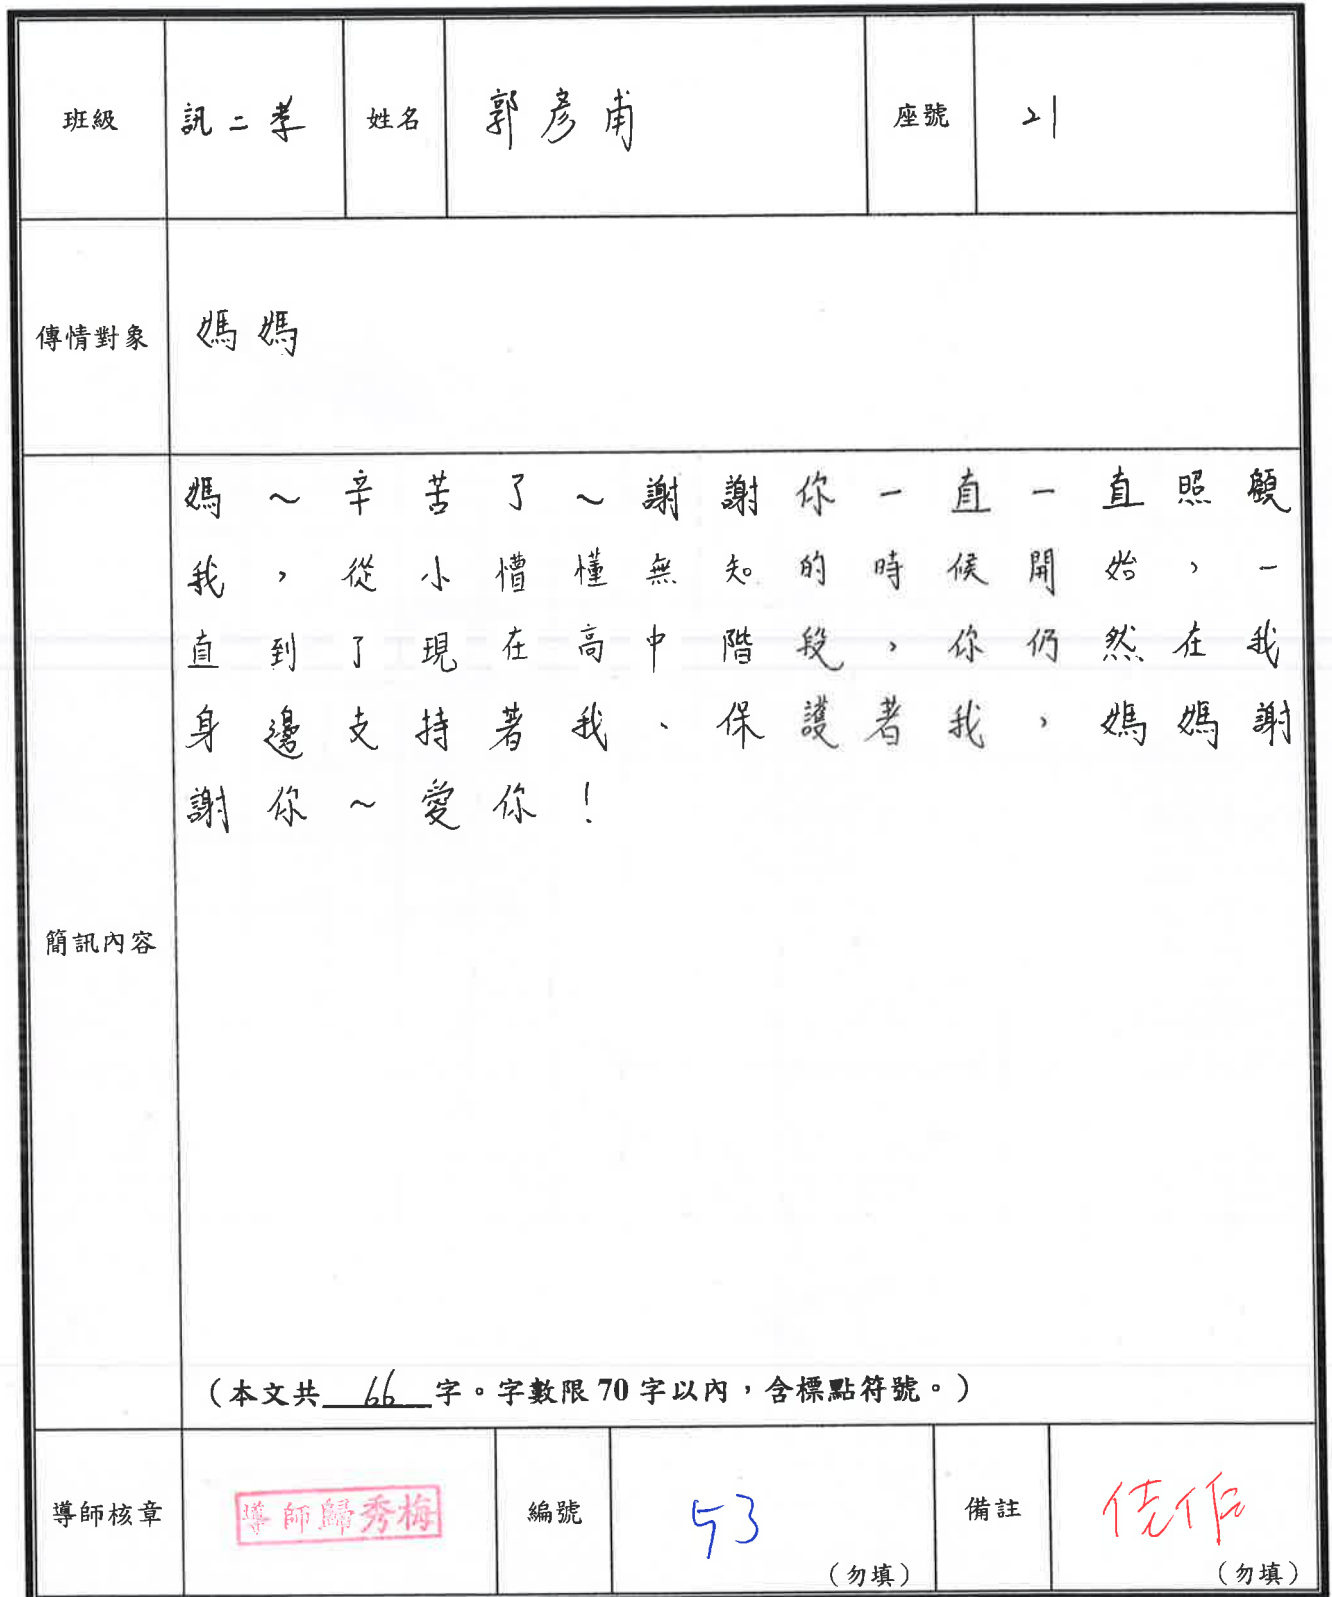 班級 訊二孝 姓名 郭彥甫 座號 21
傳情對象 媽媽
媽～辛苦了～謝謝你一直一直照顧
我，從小懵懂無知的時候開始，一
直到了現在高中階段，你仍然在我
身邊支持著我、保護著我，媽媽謝
謝你～愛你！
簡訊內容
（本文共 66 字。字數限70字以內，含標點符號。）
導師核章 導師歸秀梅 編號 53 （勿填） 備註 佳作 （勿填）